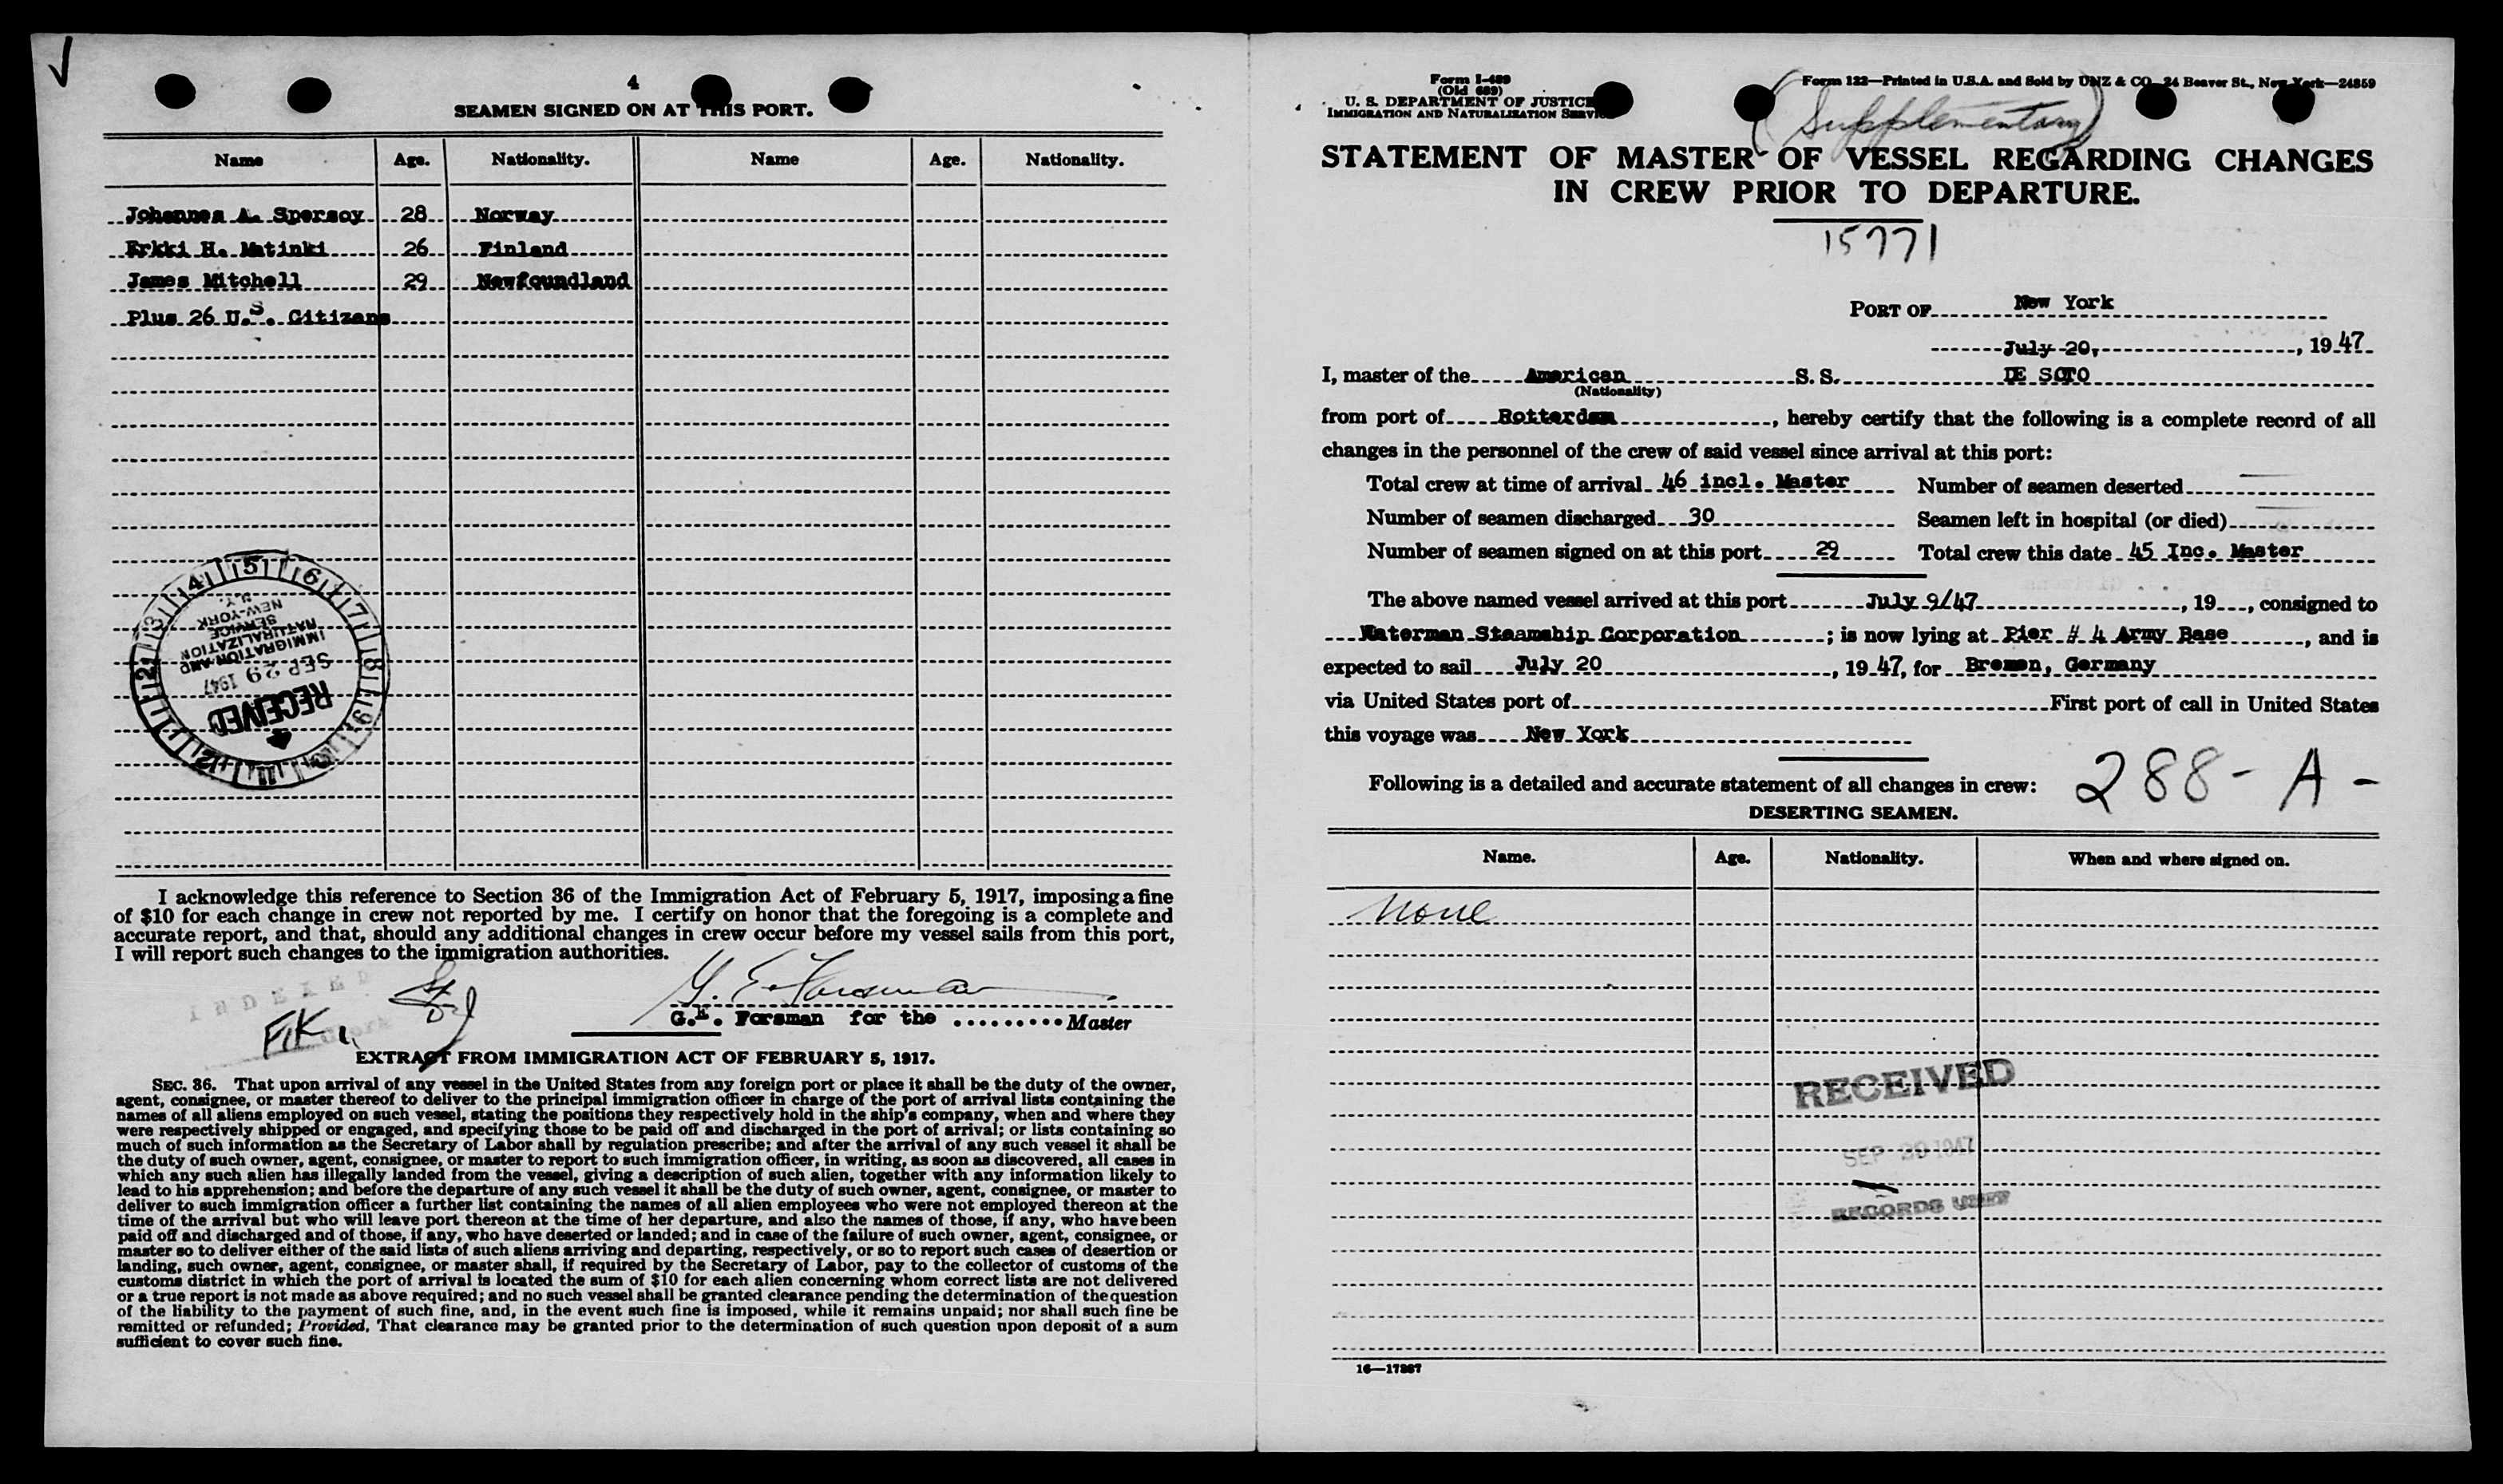 4
SEAMEN SIGNED ON AT THIS PORT.
Name Age. Nationality. Name Age. Nationality.
Johennes A. Spersoy 28 Norway
Erkki H. Matinki 26 Finland
James Mitchell 29 Newfoundland
Plus 26 U.S. Citizens
IMMIGRATION AND
NATURALIZATION
SERVICE
NEW-YORK
N.Y.
SEP 29 1947
RECEIVED
I acknowledge this reference to Section 36 of the Immigration Act of February 5, 1917, imposing a fine
of $10 for each change in crew not reported by me. I certify on honor that the foregoing is a complete and
accurate report, and that, should any additional changes in crew occur before my vessel sails from this port,
I will report such changes to the immigration authorities.
INDEXED
G. E. Forsman
G.E. Forsman for the ......... Master
EXTRACT FROM IMMIGRATION ACT OF FEBRUARY 5, 1917.
SEC. 36. That upon arrival of any vessel in the United States from any foreign port or place it shall be the duty of the owner,
agent, consignee, or master thereof to deliver to the principal immigration officer in charge of the port of arrival lists containing the
names of all aliens employed on such vessel, stating the positions they respectively hold in the ship's company, when and where they
were respectively shipped or engaged, and specifying those to be paid off and discharged in the port of arrival; or lists containing so
much of such information as the Secretary of Labor shall by regulation prescribe; and after the arrival of any such vessel it shall be
the duty of such owner, agent, consignee, or master to report to such immigration officer, in writing, as soon as discovered, all cases in
which any such alien has illegally landed from the vessel, giving a description of such alien, together with any information likely to
lead to his apprehension; and before the departure of any such vessel it shall be the duty of such owner, agent, consignee, or master to
deliver to such immigration officer a further list containing the names of all alien employees who were not employed thereon at the
time of the arrival but who will leave port thereon at the time of her departure, and also the names of those, if any, who have been
paid off and discharged and of those, if any, who have deserted or landed; and in case of the failure of such owner, agent, consignee, or
master so to deliver either of the said lists of such aliens arriving and departing, respectively, or so to report such cases of desertion or
landing, such owner, agent, consignee, or master shall, if required by the Secretary of Labor, pay to the collector of customs of the
customs district in which the port of arrival is located the sum of $10 for each alien concerning whom correct lists are not delivered
or a true report is not made as above required; and no such vessel shall be granted clearance pending the determination of the question
of the liability to the payment of such fine, and, in the event such fine is imposed, while it remains unpaid; nor shall such fine be
remitted or refunded; Provided, That clearance may be granted prior to the determination of such question upon deposit of a sum
sufficient to cover such fine.
Form I-489
(Old 689)
U. S. DEPARTMENT OF JUSTICE
IMMIGRATION AND NATURALIZATION SERVICE
Form 122—Printed in U.S.A. and Sold by UNZ & CO. 24 Beaver St., New York—24859
(Supplementary)
STATEMENT OF MASTER OF VESSEL REGARDING CHANGES
IN CREW PRIOR TO DEPARTURE.
15771
PORT OF New York
July 20, , 1947
I, master of the American S. S. DE SOTO
(Nationality)
from port of Rotterdam, hereby certify that the following is a complete record of all
changes in the personnel of the crew of said vessel since arrival at this port:
Total crew at time of arrival 46 incl. Master Number of seamen deserted
Number of seamen discharged 30 Seamen left in hospital (or died)
Number of seamen signed on at this port 29 Total crew this date 45 Inc. Master
The above named vessel arrived at this port July 9/47, 19 , consigned to
Waterman Steamship Corporation; is now lying at Pier # 4 Army Base, and is
expected to sail July 20, 1947, for Bremen, Germany
via United States port of First port of call in United States
this voyage was New York
Following is a detailed and accurate statement of all changes in crew:
288-A-
DESERTING SEAMEN.
Name. Age. Nationality. When and where signed on.
None
RECEIVED
SEP 1947
RECORDS UNIT
16—17267